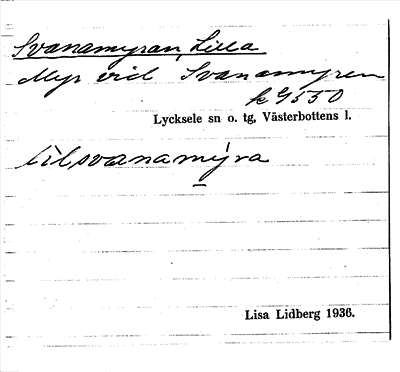 Svanamyran, Lilla
Myr vid Svanamyren
k 9550
Lycksele sn o. tg, Västerbottens l.
lilsvanamýra
Lisa Lidberg 1936.